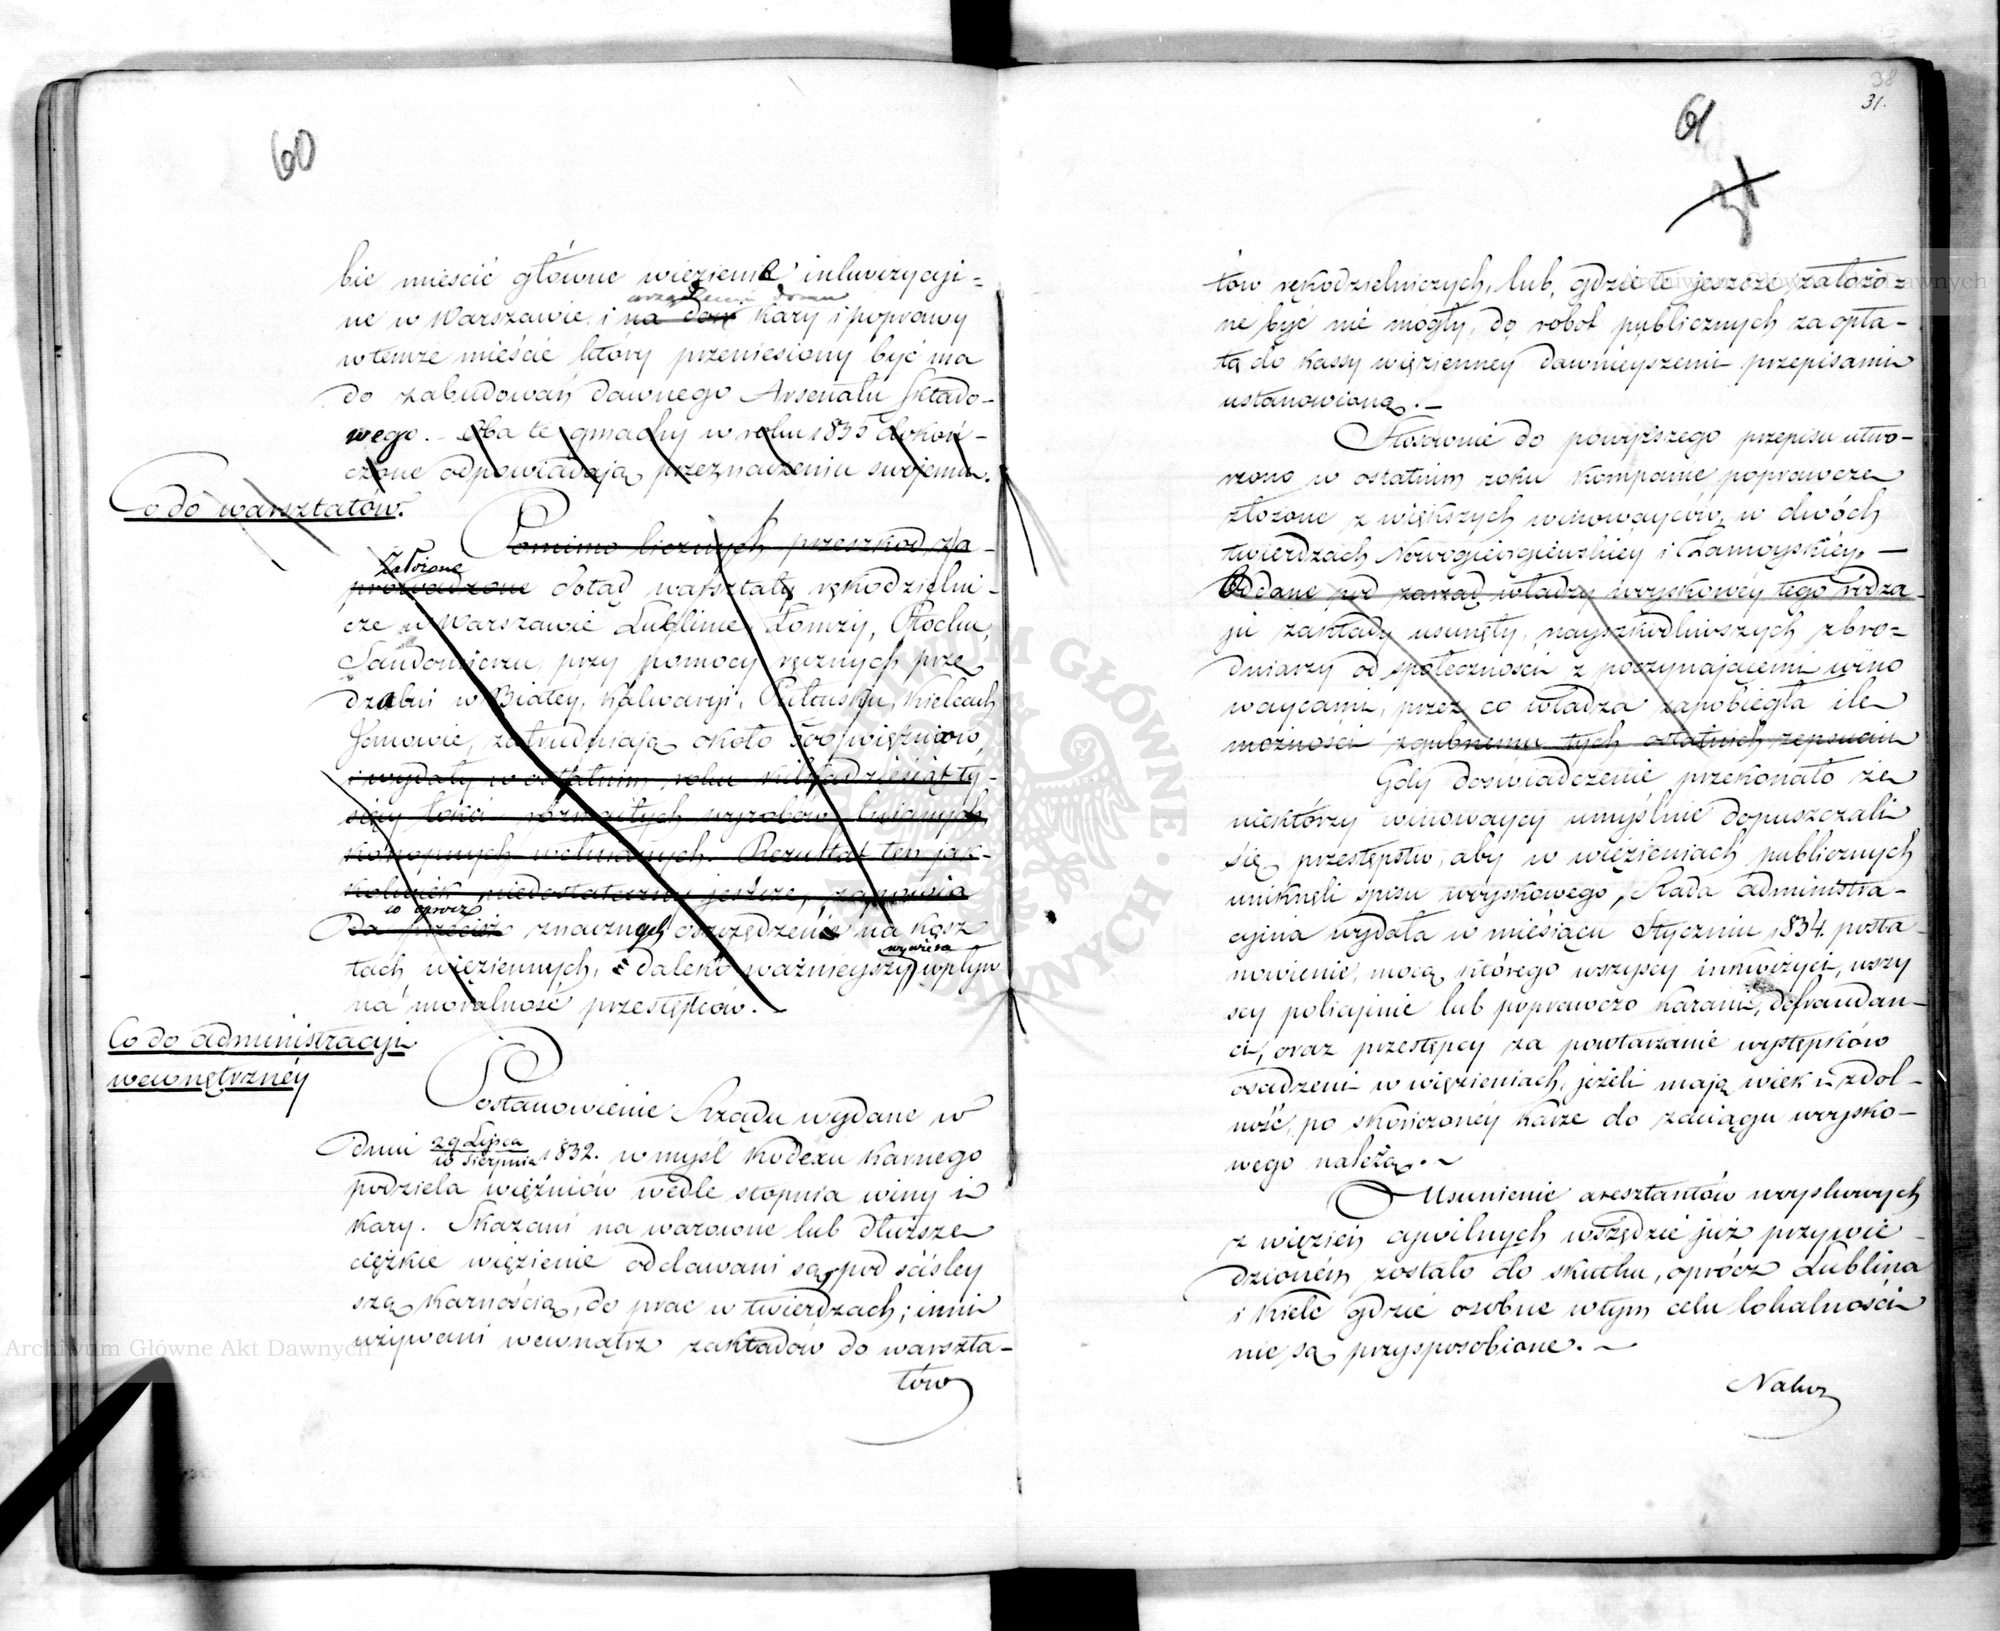 60
bie mieścić główne więzienie inkwizycyj-
urządzenia domu
ne w Warszawie, i na dom kary i poprawy
w temże mieście który przeniesiony być ma
do zabudowań dawnego Arsenału Składo-
wego. – Oba te gmachy w roku 1835 dokoń-
czone odpowiadają przeznaczeniu swojemu.
Co do warsztatów.
Pomimo licznych przeszkod, za-
Założone
prowadzone dotąd warsztaty rękodzielni-
cze w Warszawie Lublinie, Łomży, Płocku,
Sandomierzu, przy pomocy ręcznych przę
dzalni w Białey, Kalwaryi, Pułtusku, Kielcach
Janowie, zatrudniają około 500 więźniów,
i wydały w ostatnim roku kilkadziesiąt ty-
sięcy łokci rozmaitych wyrobów lnianych
konopnych wełnianych. Rezultat ten jak-
kolwiek niedostateczny jeszcze, zapowia
co oprocz
da przecież znacznych oszczędzeń na kosz
tach więziennych, daleko ważnieyszy wpływ
wywiera
na moralność przestępców. –
Co do administracyi
wewnętrzney
Postanowienie Rządu wydane w
dniu 29 Lipca 1832. w myśl Kodexu Karnego
10 Sierpnia
podziela więźniów wedle stopnia winy i
kary. Skazani na warowne lub dłuższe
ciężkie więzienie oddawani są pod ściśley
szą karnością, do prac w twierdzach; inni
używani wewnątrz zakładow do warszta-
tów
38
31.
61
31
tów rękodzielniczych, lub, gdzie te jeszcze założo-
ne być nie mogły, do robot publicznych za opła-
tą do kassy więzienney dawnieyszemi przepisami
ustanowioną. –
Stosownie do powyższego przepisu utwo-
rzono w ostatnim roku kompanie poprawcze
złożone z większych winowayców, w dwóch
twierdzach Nowogieorgiewskiey i Zamoyskiey, –
Oddane pod zarząd władzy woyskowey tego rodza-
ju zakłady usunęły nayszkodliwszych zbro-
dniarzy od społeczności z poczynającemi wino
waycami, przez co władza zapobiegła ile
możności zgubnemu tych ostatnich zepsuciu
Gdy doświadczenie przekonało że
niektórzy winowaycy umyślnie dopuszczali
się przestępstw, aby w więzieniach publicznych
uniknęli spisu woyskowego, Rada Administra-
cyjna wydała w miesiącu Styczniu 1834. posta-
nowienie, mocą którego wszyscy inkwizyci, wszy
scy policyjnie lub poprawczo karani, defraudan-
ci, oraz przestępcy za powtarzanie występków
osadzeni w więzieniach, jeżeli mają wiek i zdol-
ność, po skończoney karze do zaciągu woysko-
wego należą. –
Usunienie aresztantów woyskowych
z więzień cywilnych wszędzie już przywie-
dzionem zostało do skutku, oprócz Lublina
i Kielc gdzie osobne w tym celu lokalności
nie są przysposobione. –
Nakoz